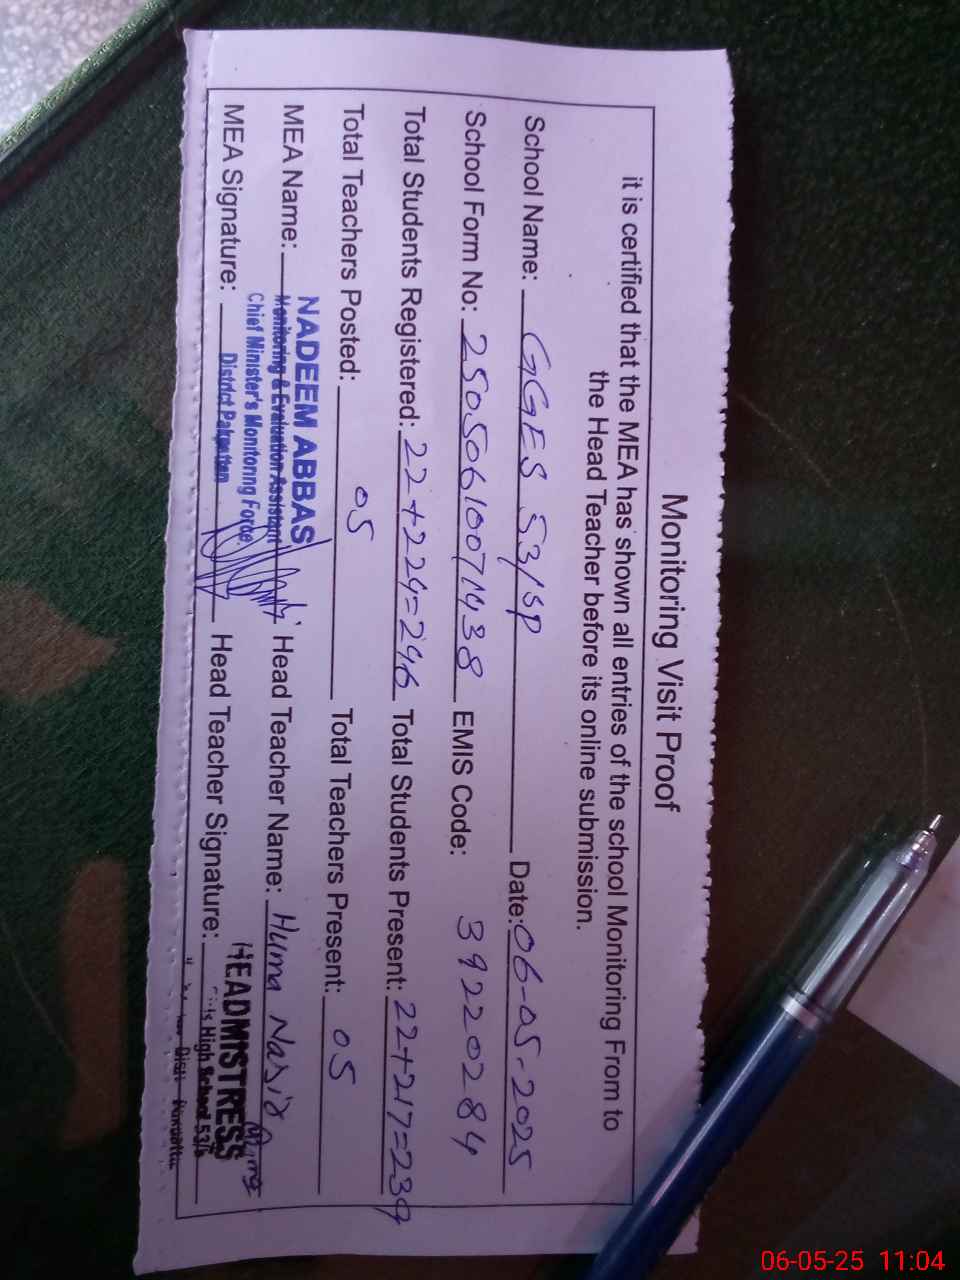 Monitoring Visit Proof
it is certified that the MEA has shown all entries of the school Monitoring From to
the Head Teacher before its online submission.
School Name: GGES 53/SP Date: 06-05-2025
School Form No: 25050610071438 EMIS Code: 39220284
Total Students Registered: 22+224=246 Total Students Present: 22+217=239
Total Teachers Posted: 05 Total Teachers Present: 05
MEA Name: NADEEM ABBAS Head Teacher Name: Huma Nasir
Monitoring & Evaluation Assistant
Chief Minister's Monitoring Force,
District Pakpattan
MEA Signature: Head Teacher Signature:
HEADMISTRESS
High School 53/
Distt
06-05-25 11:04